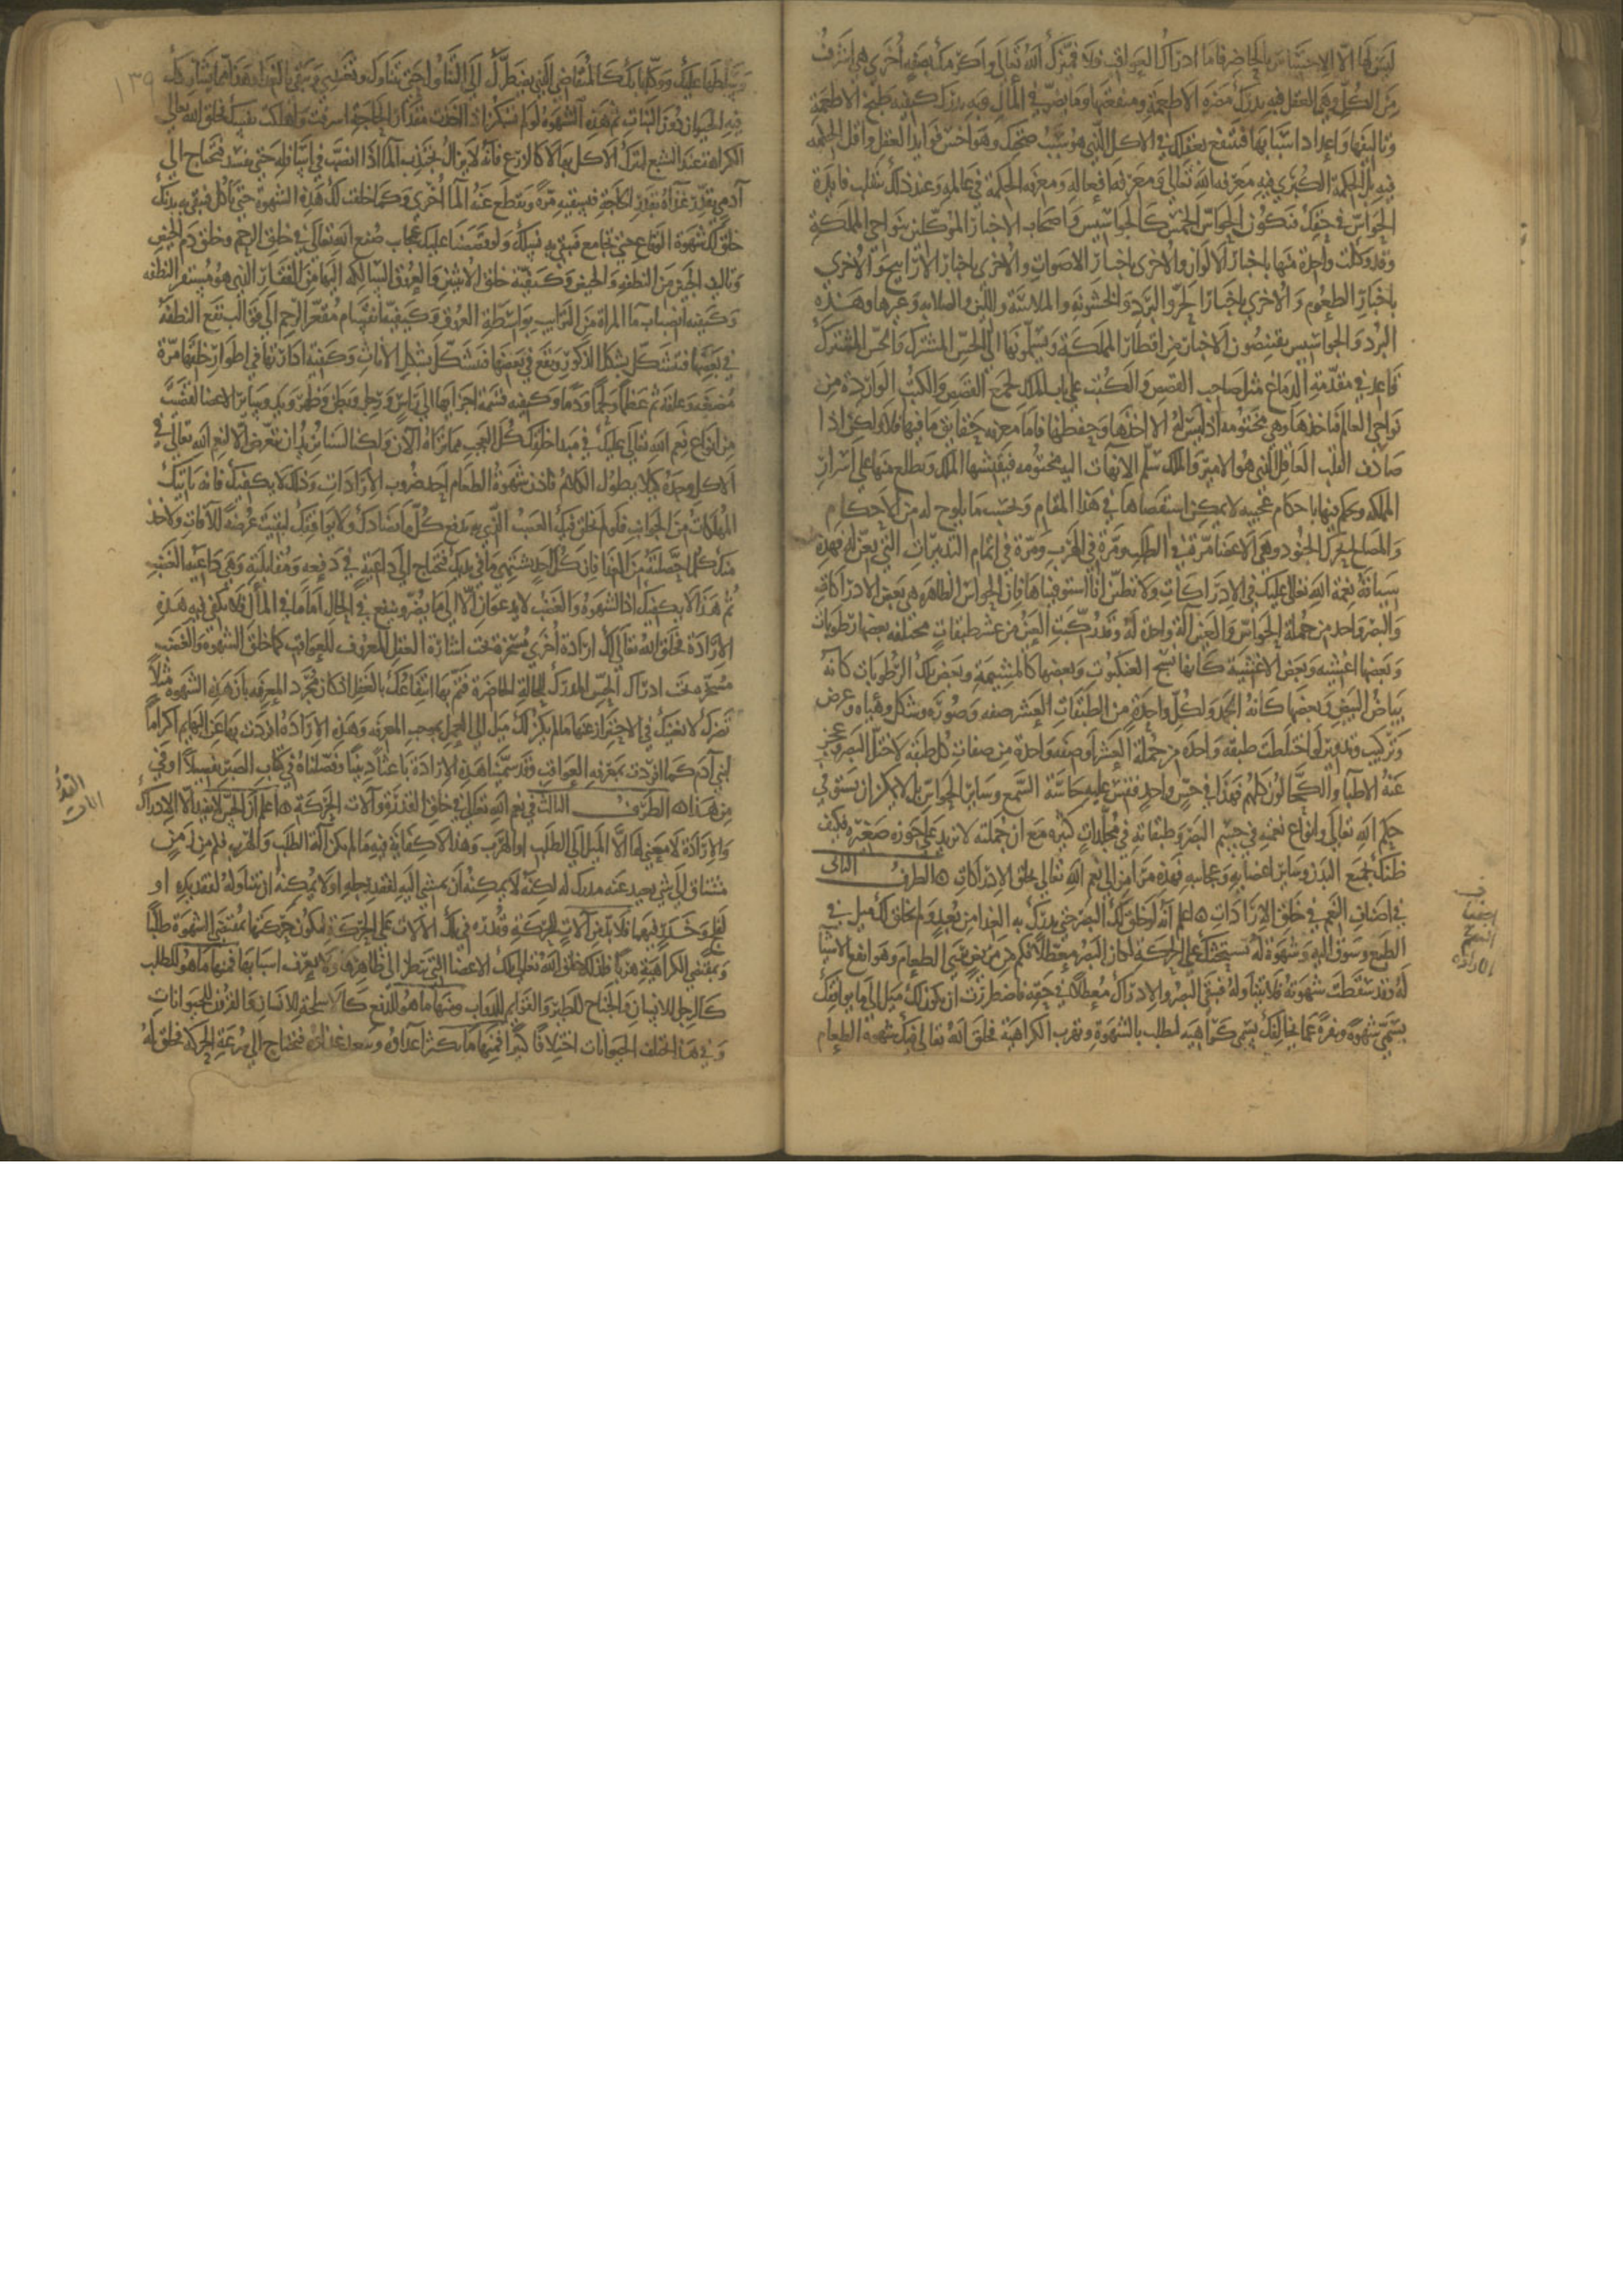 ليس لها الا الاحساس بالحاضر فاما ادراك العواقب فلا فميزك الله تعالى واكرمك بصفة أخرى هي اشرف
من الكل وهي العقل فبه يدرك مضرة الاطعمة ومنفعتها وما يضر في المآل وبه يدرك كيفية طبخ الاطعمة
وتاليفها واعداد اسبابها فتنتفع بعقلك في الاكل الذي هو سبب صحتك وهو اخس فوايد العقل واقل الحكمة
فيه بل الحكمة الكبرى فيه معرفة الله تعالى ومعرفة افعاله ومعرفة الحكمة في عالمه وعند ذلك تنقلب فايدة
الحواس في حقك فتكون الحواس الخمس كالجواسيس واصحاب الاخبار الموكلين بنواحي المملكة
وقد وكلت واحدة منها باخبار الالوان والاخرى باخبار الاصوات والاخرى باخبار الارايح والاخرى
باخبار الطعوم والاخرى باخبار الحر والبرد والخشونة والملاسة واللين والصلابة وغيرها وهذه
البرد والجواسيس يقتنصون الاخبار من اقطار المملكة ويسلمونها الى الحس المشترك والحس المشترك
قاعد في مقدمة الدماغ مثل صاحب القصص والكتب على باب الملك يجمع القصص والكتب الواردة من
نواحي العالم فياخذها وهي مختومة اذ ليس له الا اخذها وحفظها فاما معرفة حقايق ما فيها فلا ولكن اذا
صادف القلب العاقل الذي هو الامير والملك سلم الانهاآت اليه مختومة فيفتشها الملك ويطلع منها على اسرار
المملكة ويحكم فيها باحكام عجيبة لا يمكن استقصاها في هذا المقام وبحسب ما يلوح له من الاحكام
والمصالح يحرك الجنود وهي الاعضا مرة في الطلب ومرة في الهرب ومرة في اتمام التدبيرات التي تعن له فهذه
سياقة نعمة الله تعالى عليك في الادراكات ولا تظنن انا استوفيناها فان الحواس الظاهرة هي بعض الادراكات
والبصر واحد من جملة الحواس والعين آلة واحدة له وقد ركبت العين من عشر طبقات مختلفة بعضها رطوبات
وبعضها اغشية وبعض الاغشية كانها نسج العنكبوت وبعضها كالمشيمة وبعض تلك الرطوبات كانه
بياض البيض وبعضها كانه الجمد ولكل واحدة من الطبقات العشر صفة وصورة وشكل وهياة وعرض
وتركيب وتدوير لو اختلت طبقة واحدة من جملة العشر او صفة واحدة من صفات كل طبقة لاختل البصر وعجز
عنه الاطبا والكحالون كلهم فهذا في حس واحد فقس عليه حاسة السمع وساير الحواس بل لا يمكن ان يستوفى
حكم الله تعالى وانواع نعمه في جسم البصر وطبقاته في مجلدات كثيرة مع ان جملته لا تزيد على جوزة صغيرة فكيف
ظنك بجميع البدن وساير اعضايه وعجايبه فهذه مرامز الى نعم الله تعالى بخلق الادراكات ۞ الطرف الثاني
في اصناف النعم في خلق الارادات ۞ اعلم انه لو خلق لك البصر حتى يدرك به الغذا من بعيد ولم يخلق لك ميل في
الطبع وشوق اليه وشهوة له تستحثك على الحركة لكان البصر معطلا فكم من مريض يرى الطعام وهو انفع الاشيا
له وقد سقطت شهوته فلا يتناوله فيبقى البصر والادراك معطلا في حقه فاضطررت ان يكون لك ميل الى ما يوافقك
يسمى شهوة ونفرة عما يخالفك يسمى كراهية لتطلب بالشهوة وتهرب بالكراهية فخلق الله تعالى فيك شهوة الطعام
في
اصناف
النعم
الارادة
١٣٩
وسلطها عليك ووكلها بك كالمتقاضي الذي يضطرك الى التناول حتى تتناول وتغتذي وتبقى بالغذا وهذا مما يشاركك
فيه الحيوان دون النبات ثم هذه الشهوة لو لم تسكن اذا اخذت مقدار الحاجة اسرفت واهلكت نفسك فخلق الله تعالى
الكراهة عند الشبع لترك الاكل بها لا كالزرع فانه لا يزال يجتذب الما اذا انصب في اسافله حتى يفسد فيحتاج الى
آدمي يقدر غذآه بقدر الحاجة فيسقيه مرة ويقطع عنه الما أخرى وكما خلقت لك هذه الشهوة حتى تاكل فيبقى به بدنك
خلق لك شهوة الوقاع حتى تجامع فيبقى به نسلك ولو قصصنا عليك عجايب صنع الله تعالى في خلق الرحم وخلق دم الحيض
وتاليف الجنين من النطفة والحيض وكيفية خلق الانثيين والعروق السالكة اليها من الفقار الذي هو مستقر النطفة
وكيفية انصباب ما المراة من الترايب بواسطة العروق وكيفية انقسام مقعر الرحم الى قوالب تقع النطفة
في بعضها فتتشكل بشكل الذكور وتقع في بعضها فتتشكل بشكل الاناث وكيفية ادارتها في اطوار خلقها مرة
مضغة وعلقة ثم عظما ولحما ودما وكيفية قسمة اجزايها الى راس ورجل وبطن وظهر ويد وساير الاعضا لقضيت
من انواع نعم الله تعالى عليك في مبدا خلقك كل العجب مما تراه الآن ولكنا لسنا نريد ان نتعرض الا لنعم الله تعالى في
الاكل وحده كيلا يطول الكلام فاذن شهوة الطعام احد ضروب الارادات وذلك لا يكفيك فانه تاتيك
المهلكات من الجوانب فلو لم يخلق فيك الغضب الذي به تدفع كل ما يضادك ولا يوافقك لبقيت عرضة للآفات ولاخذ
منك كل ما حصلته من الغذا فان كل احد يشتهي ما في يديك فتحتاج الى داعية في دفعه ومقابلته وهي داعية الغضب
ثم هذا لا يكفيك اذ الشهوة والغضب لا يدعوان الا الى ما يضر وينفع في الحال اما في المآل فلا يكفي فيه هذه
الارادة فخلق الله تعالى لك ارادة أخرى مسخرة تحت اشارة العقل المعرف للعواقب كما خلق الشهوة والغضب
مسخرة تحت ادراك الحس المدرك للحالة الحاضرة فتم بها انتفاعك بالعقل اذ كان مجرد المعرفة بان هذه الشهوة مثلا
تضرك لا تغنيك في الاحتراز عنها ما لم يكن لك ميل الى العمل بموجب المعرفة وهذه الارادة افردت بها عن البهايم اكراما
لبني آدم كما افردت بمعرفة العواقب وقد سمينا هذه الارادة باعثا دينيا وفصلناه في كتاب الصبر تفصيلا اوفى
من هذا ۞ الطرف الثالث في نعم الله تعالى في خلق القدرة وآلات الحركة ۞ اعلم ان الحس لا يفيد الا الادراك
والارادة لا معنى لها الا الميل الى الطلب او الهرب وهذا لا كفاية فيه ما لم يكن آلة الطلب والهرب فكم من زمن
مشتاق الى شي بعيد عنه مدرك له لكنه لا يمكنه ان يمشي اليه لفقد رجله او لا يمكنه ان يتناوله لفقد يده او
لفلج وخدر فيهما فلا بد من آلات للحركة وقدرة في تلك الالات على الحركة لتكون حركتها بمقتضى الشهوة طلبا
وبمقتضى الكراهية هربا فلذلك خلق الله تعالى لك الاعضا التي تنظر الى ظاهرها ولا تعرف اسبابها فمنها ما هو للطلب
كالرجل للانسان والجناح للطير والقوايم للدواب ومنها ما هو للدفع كالاسلحة للانسان والقرون للحيوانات
وفي هذا اختلفت الحيوانات اختلافا كثيرا فمنها ما يكثر اعداوه ويبعد غذاوه فتحتاج الى سرعة الحركة فخلق له